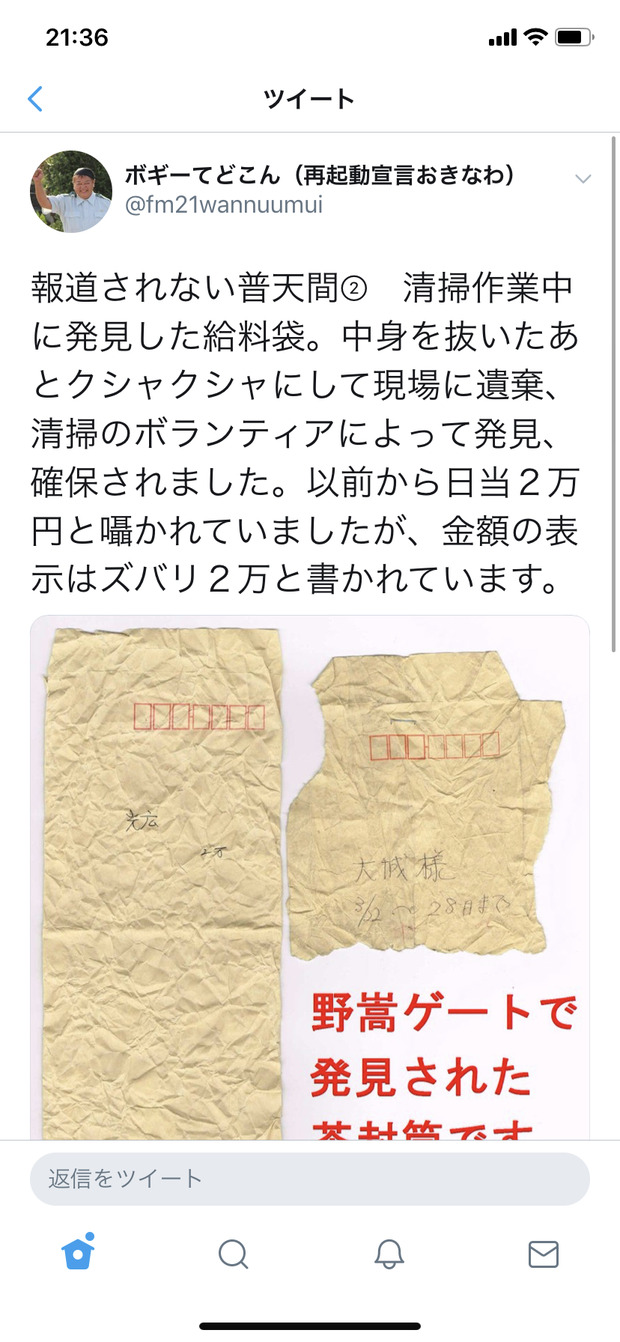 21:36
ツイート
ボギーてどこん（再起動宣言おきなわ）
@fm21wannuumui
報道されない普天間②　清掃作業中
に発見した給料袋。中身を抜いたあ
とクシャクシャにして現場に遺棄、
清掃のボランティアによって発見、
確保されました。以前から日当２万
円と囁かれていましたが、金額の表
示はズバリ２万と書かれています。
光広
2万
大城様
3/12 〜 28日まで
野嵩ゲートで
発見された
茶封筒です
返信をツイート